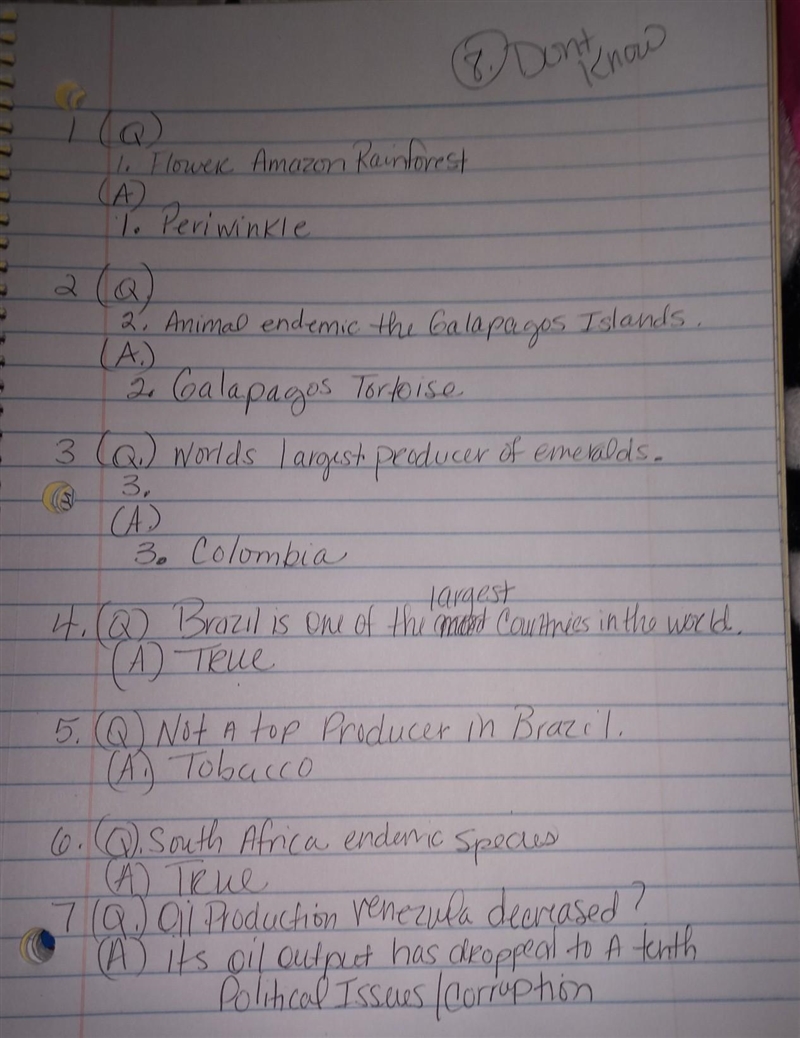 8. Dont
Know
1 (Q)
1. Flower Amazon Rainforest
(A)
1. Periwinkle
2 (Q)
2. Animal endemic the Galapagos Islands.
(A.)
2. Galapagos Tortoise
3 (Q.) Worlds largest producer of emeralds.
3.
(A)
3. Colombia
largest
4. (Q) Brazil is one of the Countries in the world.
(A) True
5. (Q) Not A top Producer in Brazil.
(A.) Tobacco
6. (Q). South Africa endemic species
(A) True
7 (Q.) Oil Production venezula decreased?
(A) Its oil output has droppeal to A tenth
Political Issues/Corruption